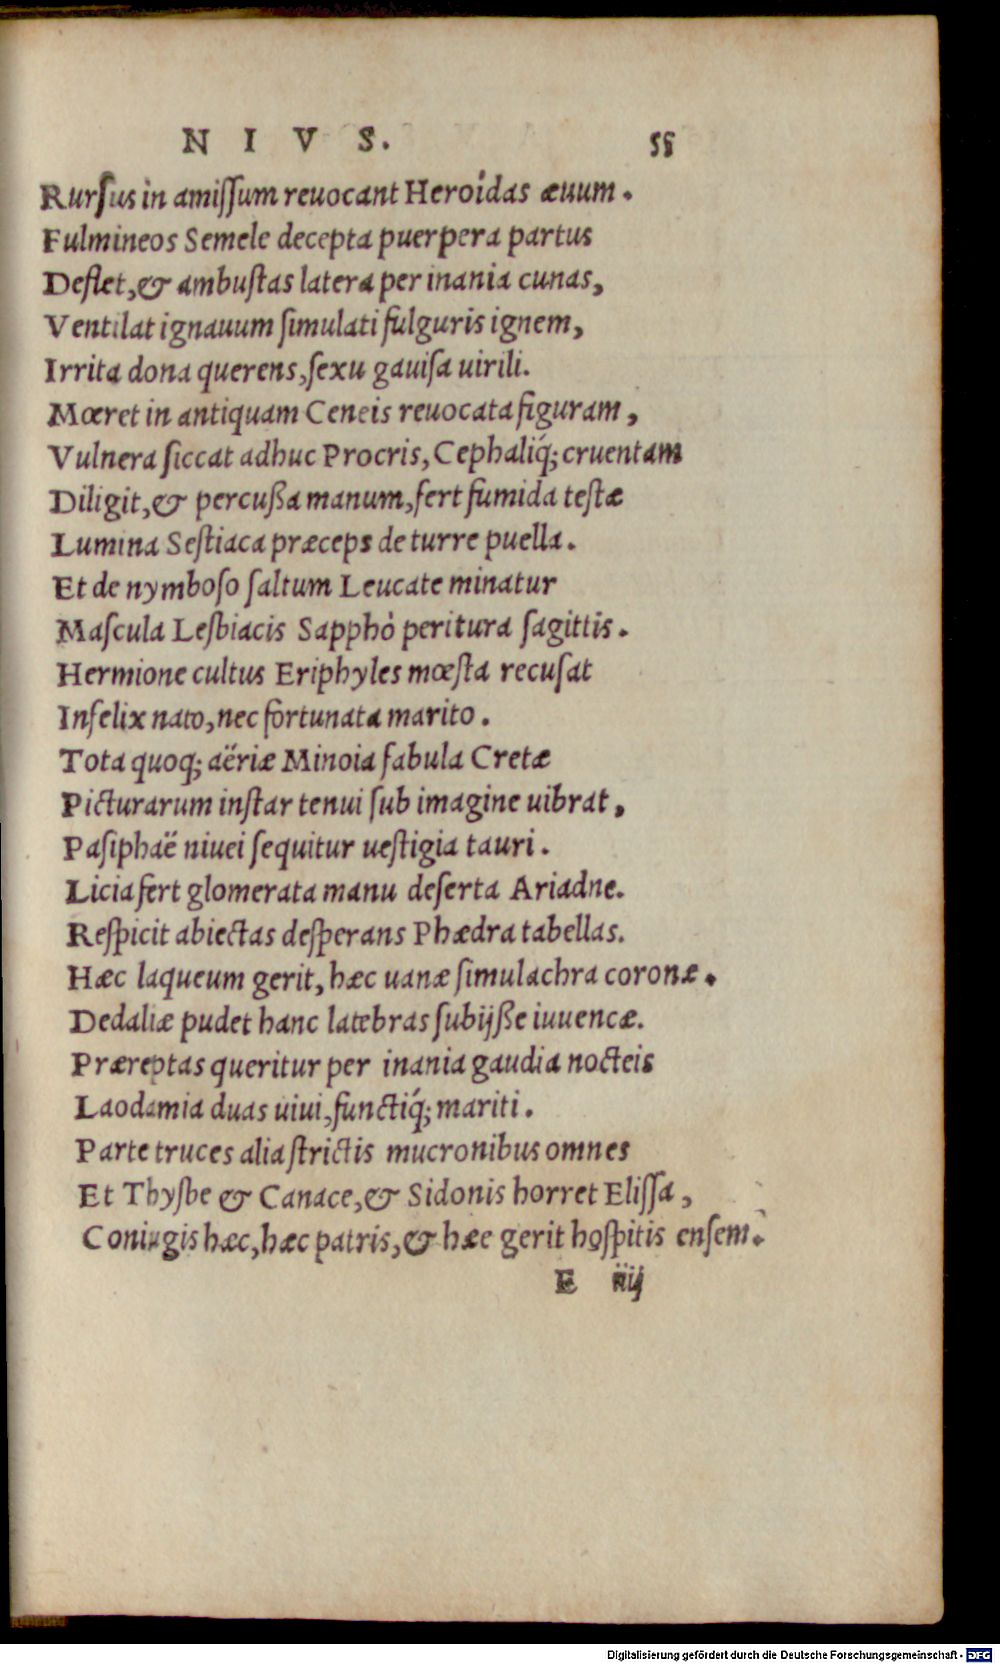 N I V S. 55
Rurſus in amiſſum reuocant Heroîdas æuum.
Fulmineos Semele decepta puerpera partus
Deflet, & ambuſtas latera per inania cunas,
Ventilat ignauum ſimulati fulguris ignem,
Irrita dona querens, ſexu gauiſa uirili.
Mœret in antiquam Ceneis reuocata figuram,
Vulnera ſiccat adhuc Procris, Cephaliq́; cruentam
Diligit, & percußa manum, fert fumida teſtæ
Lumina Seſtiaca præceps de turre puella.
Et de nymboſo ſaltum Leucate minatur
Maſcula Lesbiacis Sapphò peritura ſagittis.
Hermione cultus Eriphyles mœſta recuſat
Infelix nato, nec fortunata marito.
Tota quoq; aëriæ Minoia fabula Cretæ
Picturarum inſtar tenui ſub imagine uibrat,
Paſiphaë niuei ſequitur ueſtigia tauri.
Licia fert glomerata manu deſerta Ariadne.
Reſpicit abiectas deſperans Phædra tabellas.
Hæc laqueum gerit, hæc uanæ ſimulachra coronæ.
Dedaliæ pudet hanc latebras ſubijße iuuencæ.
Præreptas queritur per inania gaudia nocteis
Laodamia duas uiui, functiq́; mariti.
Parte truces alia ſtrictis mucronibus omnes
Et Thyſbe & Canace, & Sidonis horret Eliſſa,
Coniugis hæc, hæc patris, & hæc gerit hoſpitis enſem.
E iiij
Digitalisierung gefördert durch die Deutsche Forschungsgemeinschaft - DFG